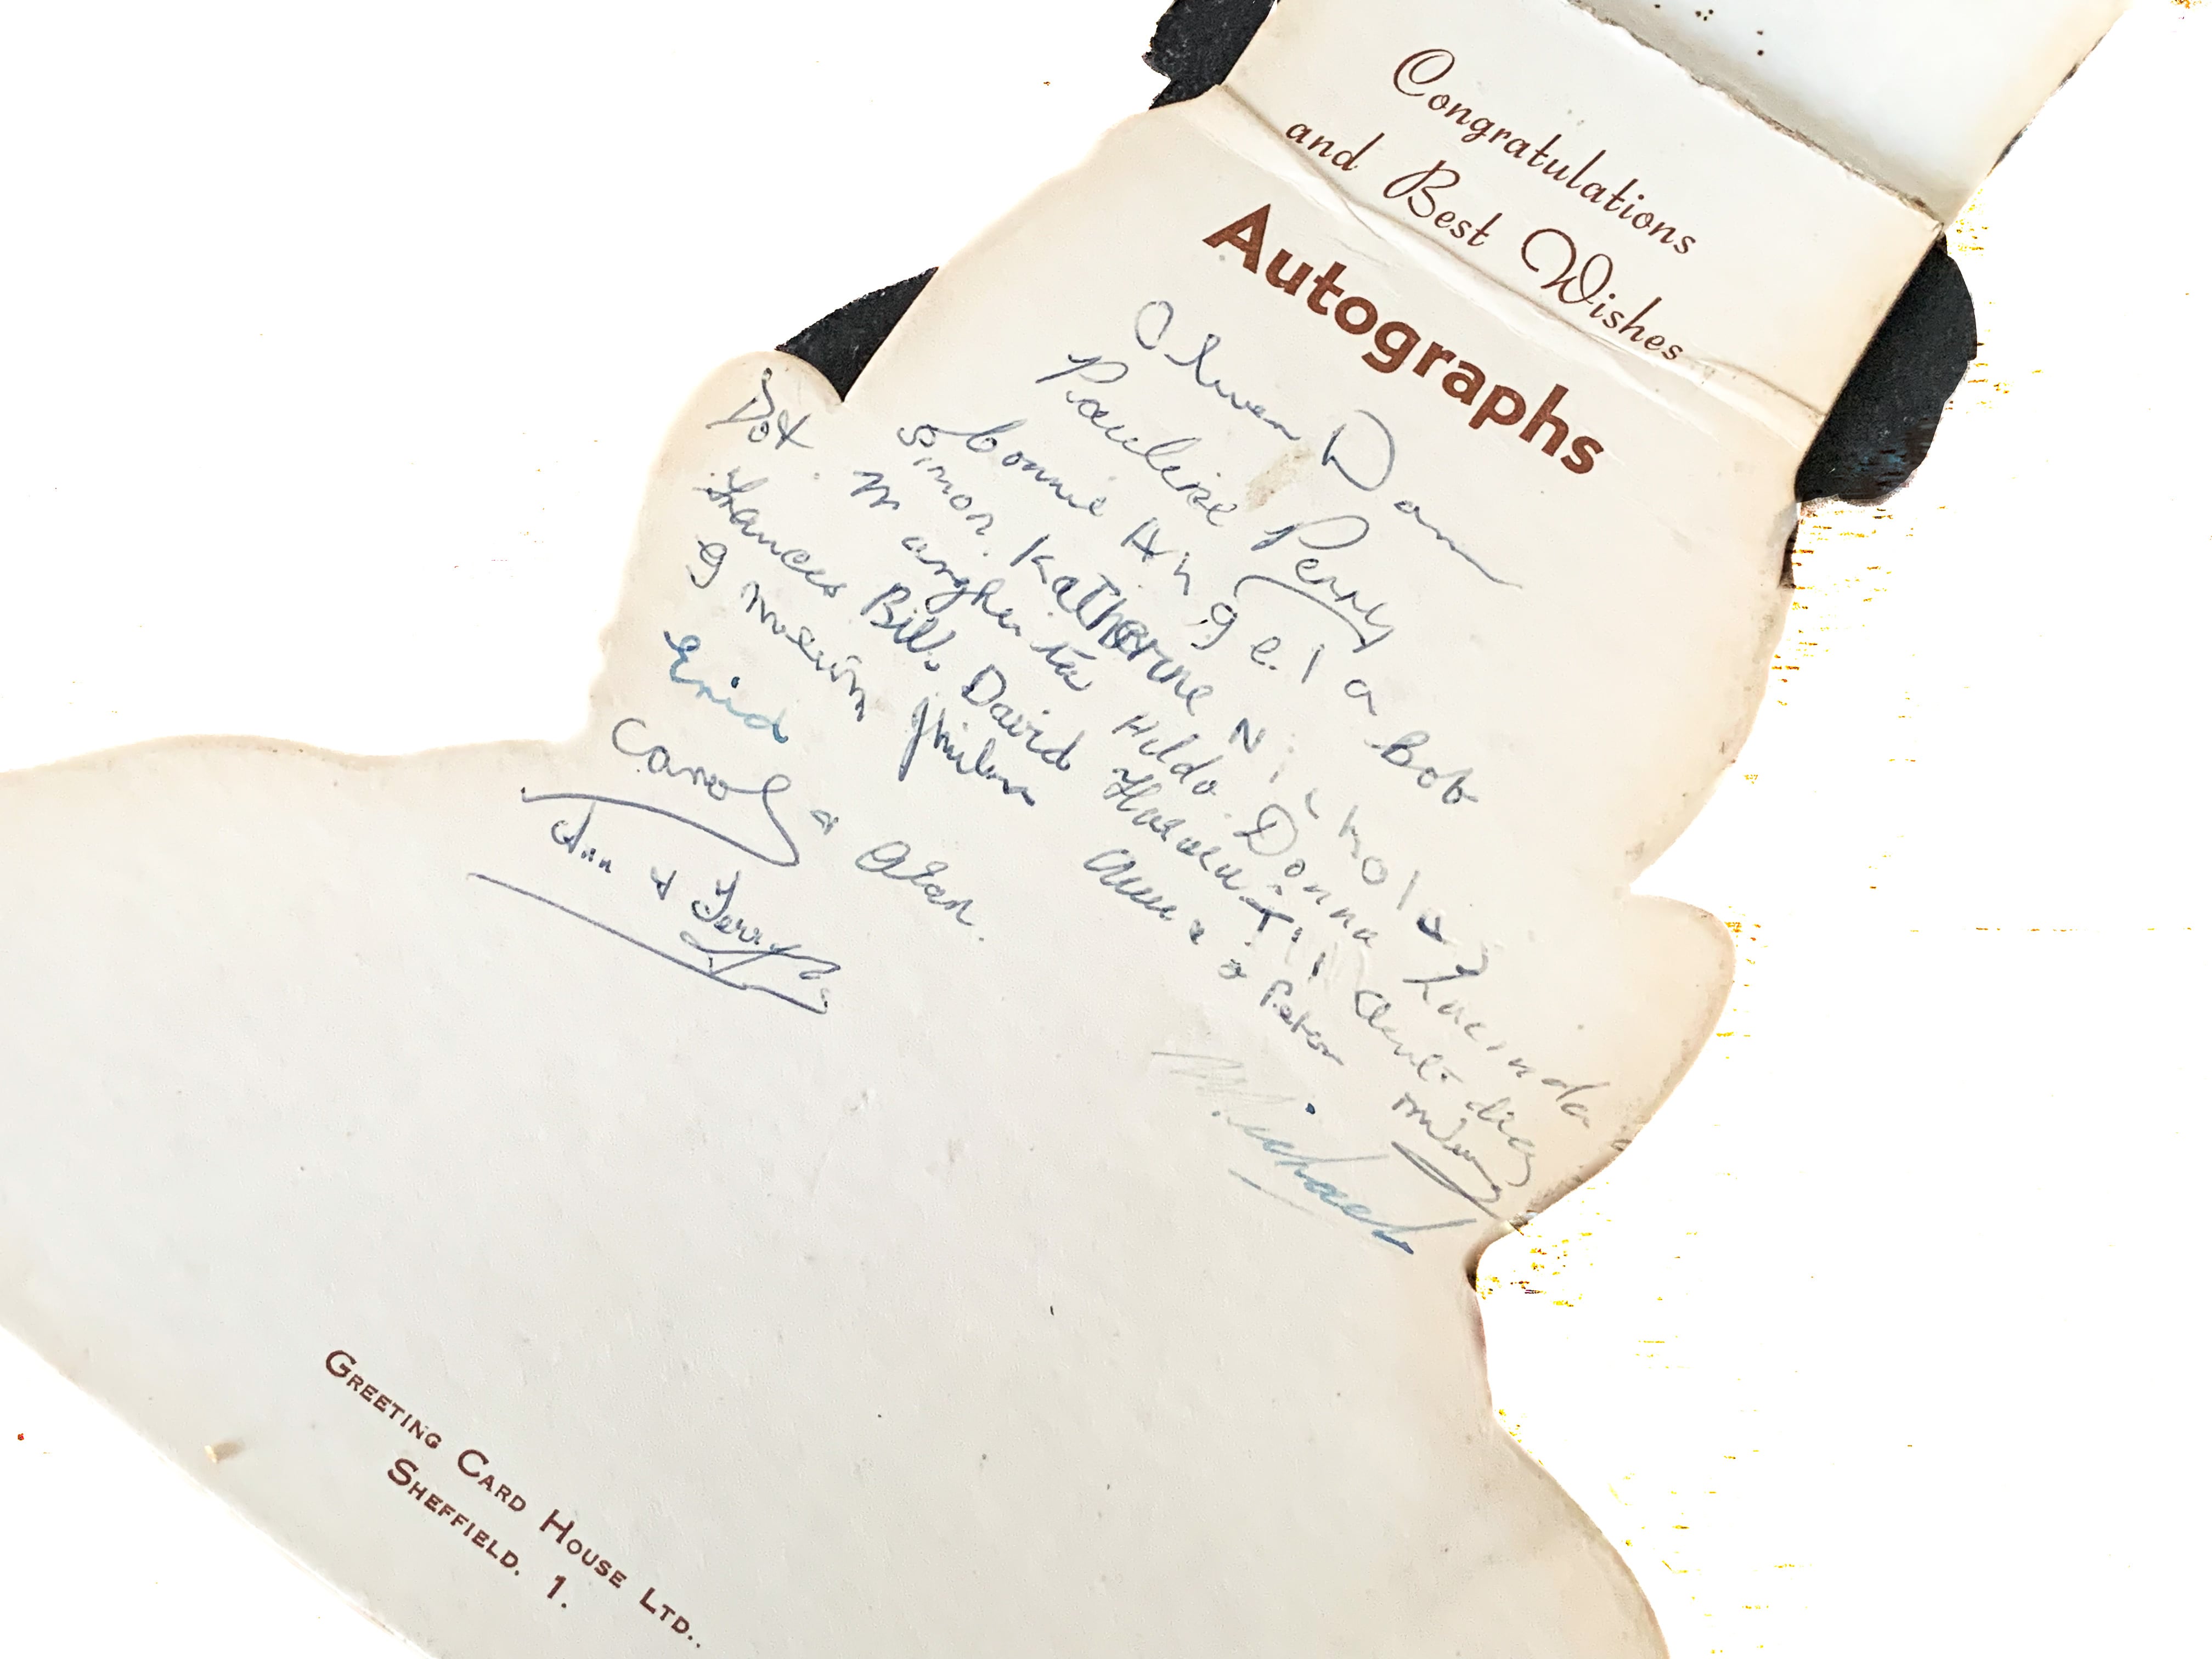 Congratulations
and Best Wishes
Autographs
Olwen Dom
Pauline Perry
Connie Angela Bob
Simon. Katherine Nicholas
Dot. Margherita Hilda. Donna Lucinda
Frances Bill. David Till Aunt
Philip Anne & Peter
Enid Michael
Carol & Alan.
Ann & Terry
GREETING CARD HOUSE LTD..
SHEFFIELD. 1.